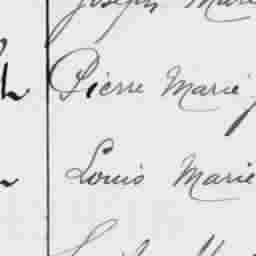 Joseph Marie
Pierre Marie
Louis Marie